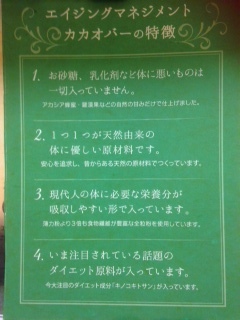 エイジングマネジメント
カカオバーの特徴
1. お砂糖、乳化剤など体に悪いものは
一切入っていません。
アカシア蜂蜜・羅漢果などの自然の甘みだけで仕上げました。
2. 1つ1つが天然由来の
体に優しい原材料です。
安心を追求し、昔からある天然の原材料でつくっています。
3. 現代人の体に必要な栄養分が
吸収しやすい形で入っています。
薄力粉より3倍も食物繊維が豊富な全粒粉を使用しています。
4. いま注目されている話題の
ダイエット原料が入っています。
今大注目のダイエット成分「キノコキトサン」が入っています。